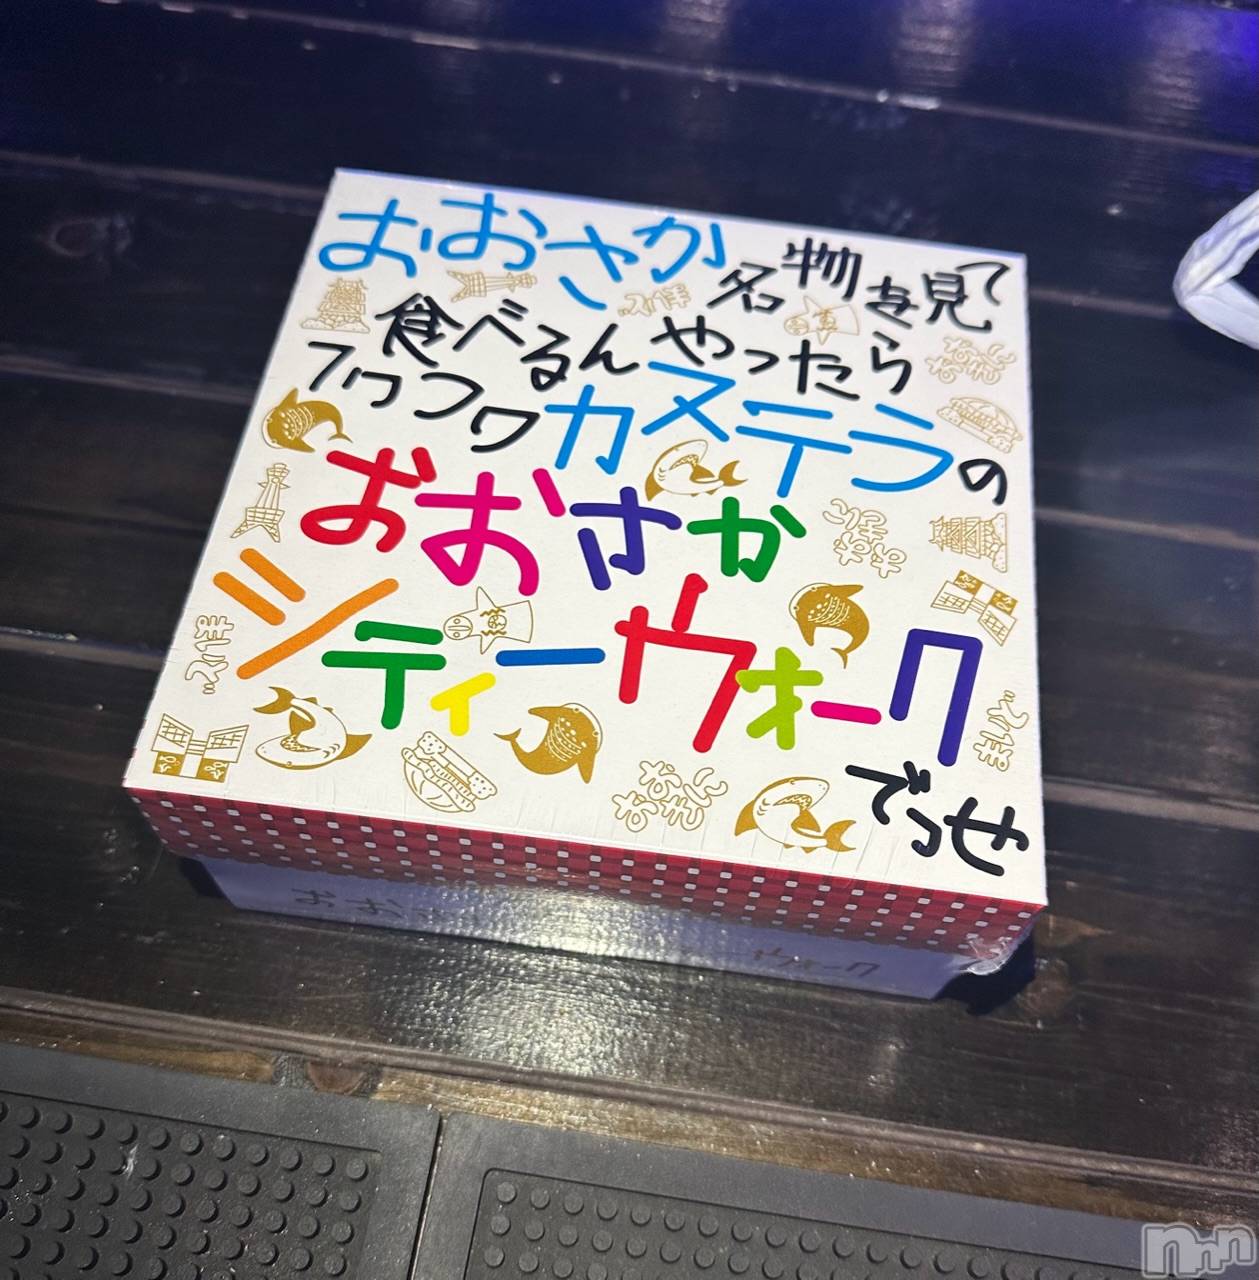 おおさか名物を見て
食べるんやったら
フワフワカステラの
おおさか
シティーウォーク
でっせ
おおさ
ウォーク
nnn